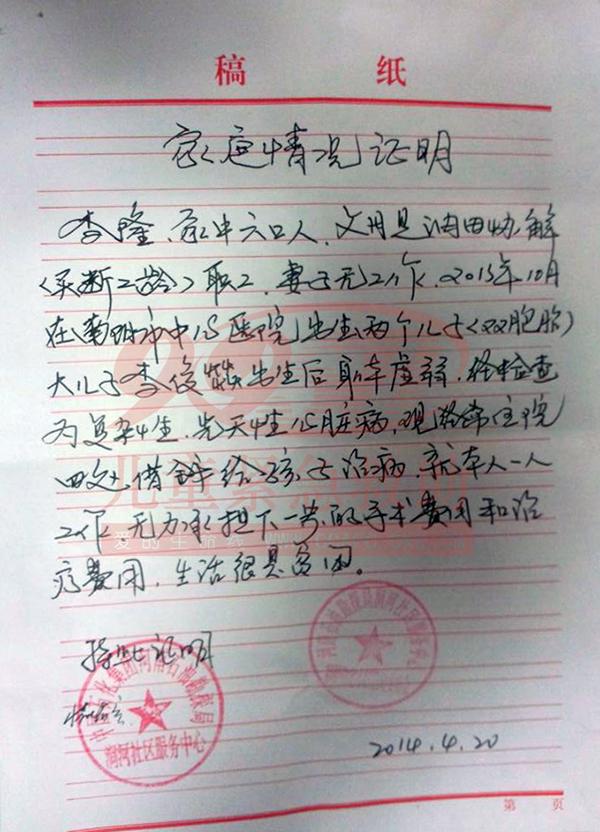 稿 纸
家庭情况证明
李隆，家中六口人，父母是油田协解
〈买断工龄〉职工，妻子无工作，2013年10月
在南阳市中心医院出生两个儿子〈双胞胎〉
大儿子李俊 出生后身体虚弱，经检查
为复杂性先天性心脏病，现经常住院
四处借钱给孩子治病，就本人一人
工作 无力承担下一步的手术费用和治
疗费用，生活很是贫困。
特此证明
情况属实
中石化集团河南石油勘探局
涧河社区服务中心
2014.4.20
第 页